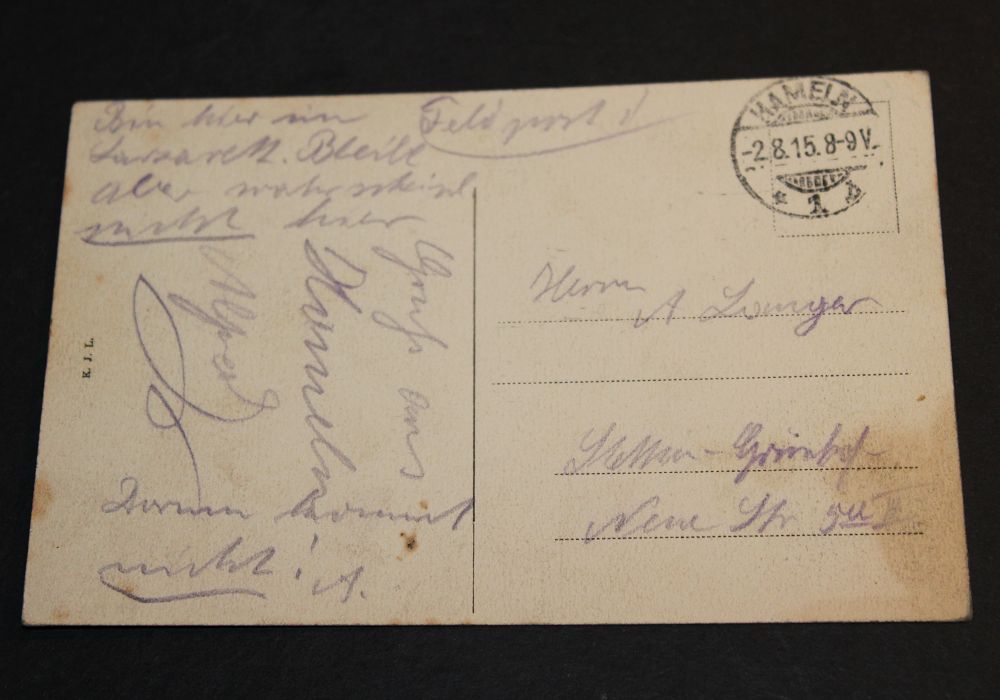 Bin hier im
Lazarett. Bleibe
aber wahrscheinl
nicht hier
Feldpost
Gruß aus
Hameln
Alfred
Darum kommt
nicht! A.
K. J. L.
HAMELN
-2.8.15.8-9V.
* 1 b
Herrn
A Langer
Stettin-Grünhof-
Neue Str